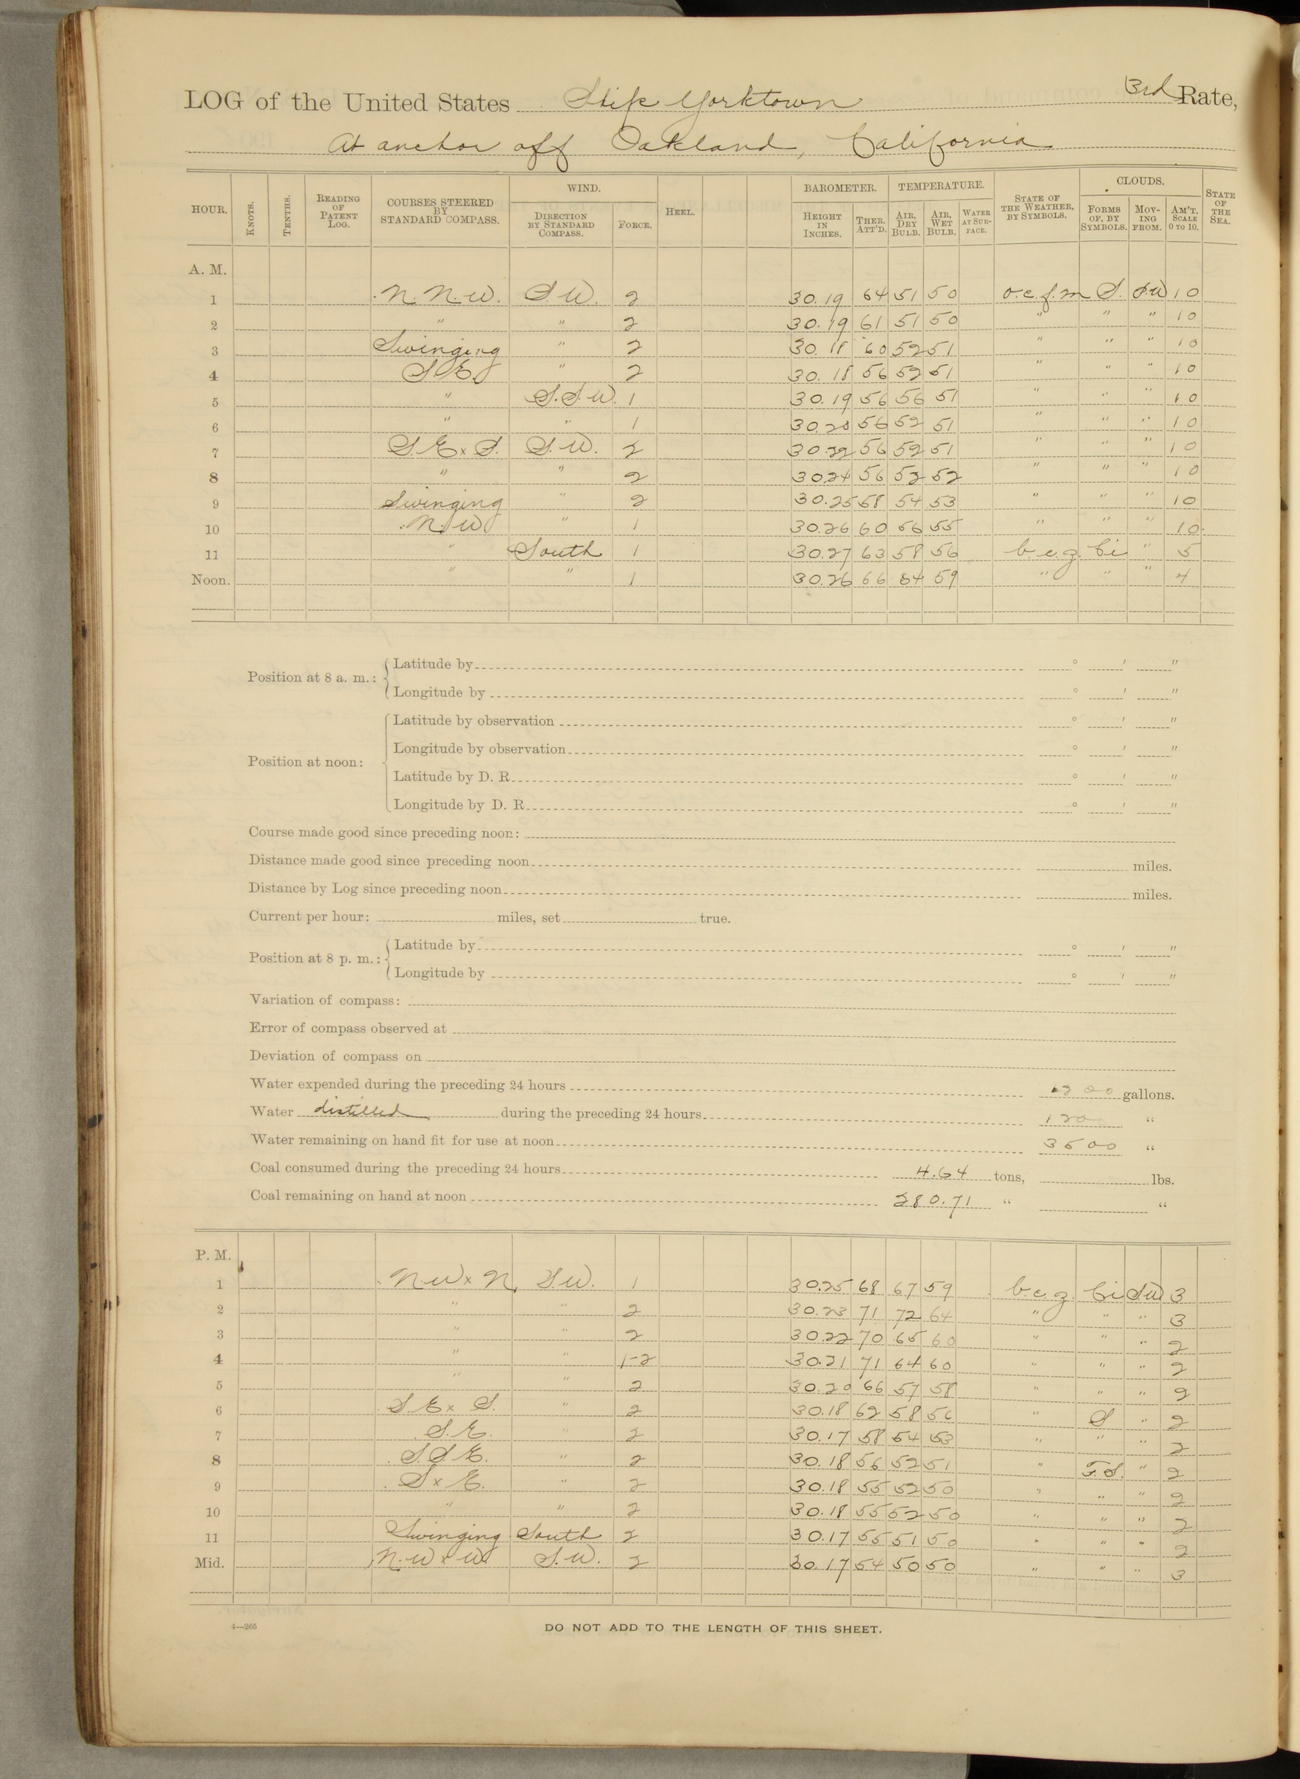 LOG of the United States Ship Yorktown 3rd Rate,
At anchor off Oakland, California
HOUR. KNOTS. TENTHS. READING OF PATENT LOG. COURSES STEERED BY STANDARD COMPASS. WIND. DIRECTION BY STANDARD COMPASS. FORCE. HEEL. BAROMETER. HEIGHT IN INCHES. THER. ATT'D. TEMPERATURE. AIR, DRY BULB. AIR, WET BULB. WATER AT SURFACE. STATE OF THE WEATHER, BY SYMBOLS. CLOUDS. FORMS OF, BY SYMBOLS. MOVING FROM. AM'T. SCALE 0 TO 10. STATE OF THE SEA.
A. M.
1 N. N. W. S. W. 2 30.19 64 51 50 o.c.f.m S. S.W 10
2 " " 2 30.19 61 51 50 " " " 10
3 Swinging " 2 30.18 60 52 51 " " " 10
4 S. E. " 2 30.18 56 52 51 " " " 10
5 " S.S.W. 1 30.19 56 56 51 " " " 10
6 " " 1 30.20 56 52 51 " " " 10
7 S. E x S. S. W. 2 30.22 56 52 51 " " " 10
8 " " 2 30.24 56 52 52 " " " 10
9 Swinging " 2 30.25 58 54 53 " " " 10
10 N. W. " 1 30.26 60 56 55 " " " 10
11 " South 1 30.27 63 58 56 b.c.z. Ci " 5
Noon. " " 1 30.26 66 64 59 " " " 4
Position at 8 a. m.: Latitude by ° ' "
Longitude by ° ' "
Position at noon: Latitude by observation ° ' "
Longitude by observation ° ' "
Latitude by D. R. ° ' "
Longitude by D. R. ° ' "
Course made good since preceding noon:
Distance made good since preceding noon miles.
Distance by Log since preceding noon miles.
Current per hour: miles, set true.
Position at 8 p. m.: Latitude by ° ' "
Longitude by ° ' "
Variation of compass:
Error of compass observed at
Deviation of compass on
Water expended during the preceding 24 hours gallons.
Water distilled during the preceding 24 hours 120 "
Water remaining on hand fit for use at noon 3500 "
Coal consumed during the preceding 24 hours 4.64 tons, lbs.
Coal remaining on hand at noon 280.71 " "
P. M.
1 N W x N. S. W. 1 30.25 68 67 59 b.c.z. Ci S.W 3
2 " " 2 30.23 71 72 64 " " " 3
3 " " 2 30.22 70 65 60 " " " 2
4 " " 1-2 30.21 71 64 60 " " " 2
5 " " 2 30.20 66 57 58 " " " 2
6 S. E x S. " 2 30.18 62 58 56 " S " 2
7 S. E. " 2 30.17 58 54 53 " " " 2
8 S S E. " 2 30.18 56 52 51 " " 2
9 S x E. " 2 30.18 55 52 50 " " " 2
10 " " 2 30.18 55 52 50 " " " 2
11 Swinging South 2 30.17 55 51 50 " " " 2
Mid. N. W x W. S. W. 2 30.17 54 50 50 " " " 3
4—265
DO NOT ADD TO THE LENGTH OF THIS SHEET.